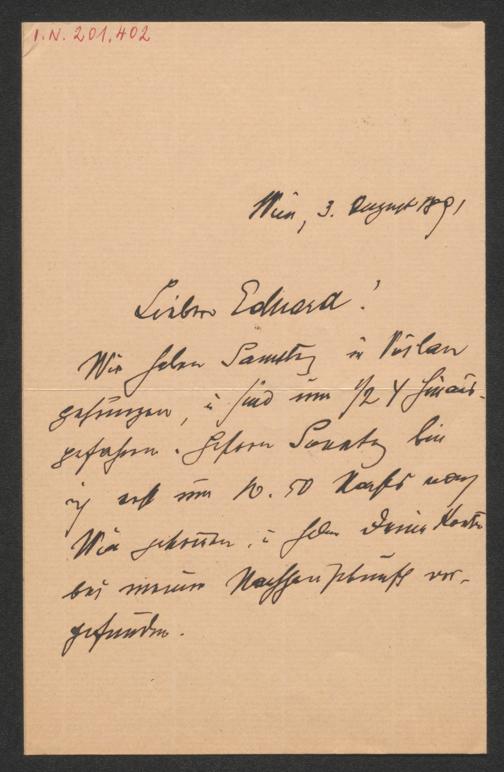 I.N. 201.402
Wien, 3. August 1891
Lieber Eduard!
Wir haben Samstag in Vöslau
gesungen, u sind um 1/2 4 hinaus-
gefahren. Gestern Sonntag bin
ich erst um 10.50 Nachts nach
Wien gekommen, u habe Deine Karte
bei meiner Nachhausekunft vor-
gefunden.